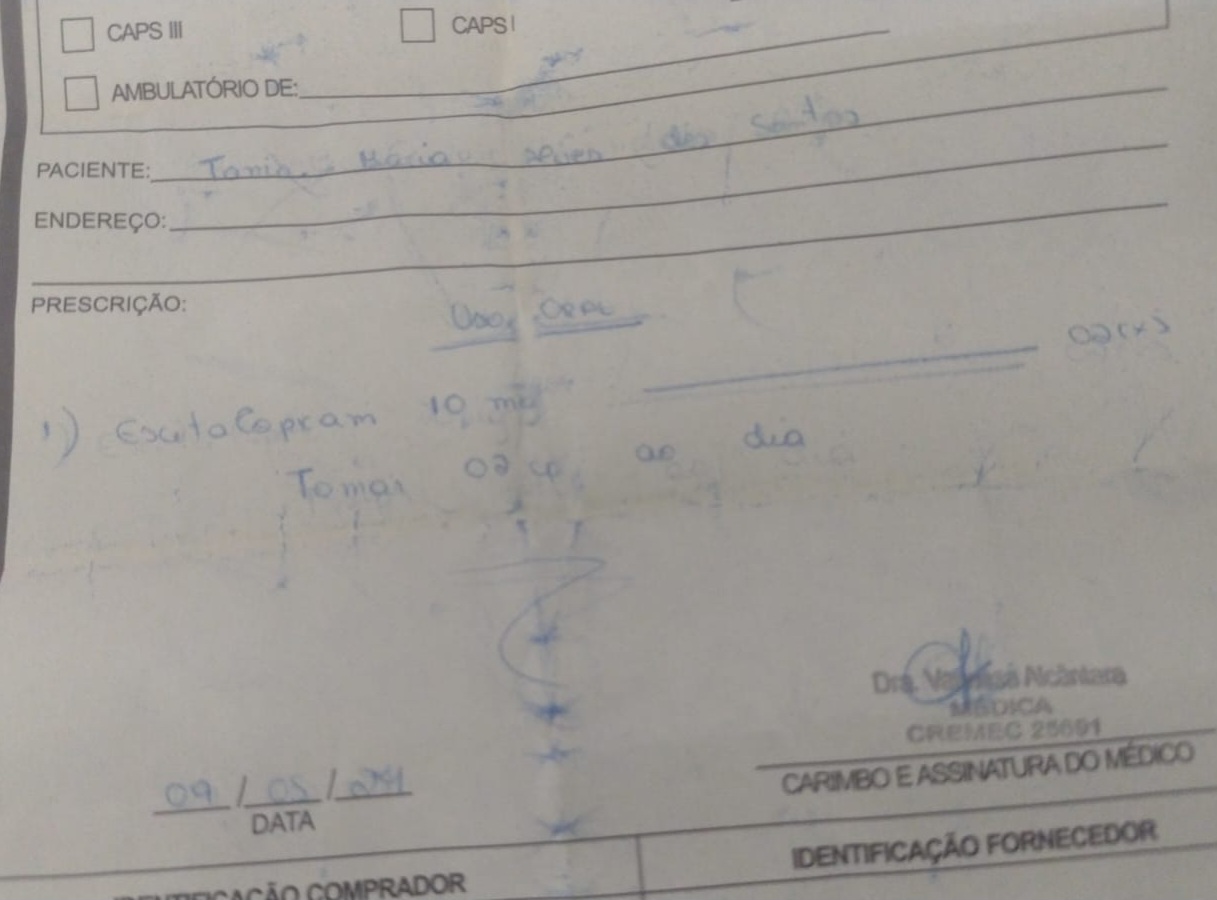 CAPS III
CAPS I
AMBULATÓRIO DE:
PACIENTE: Tania Maria dos Santos
ENDEREÇO:
PRESCRIÇÃO:
Uso Oral
1) Escitalopram 10 mg 02(x)
Tomar 02 cp ao dia
Dra. Alcântara
MÉDICA
CREMEC 25691
CARIMBO E ASSINATURA DO MÉDICO
09 / 05 /
DATA
IDENTIFICAÇÃO FORNECEDOR
IDENTIFICAÇÃO COMPRADOR